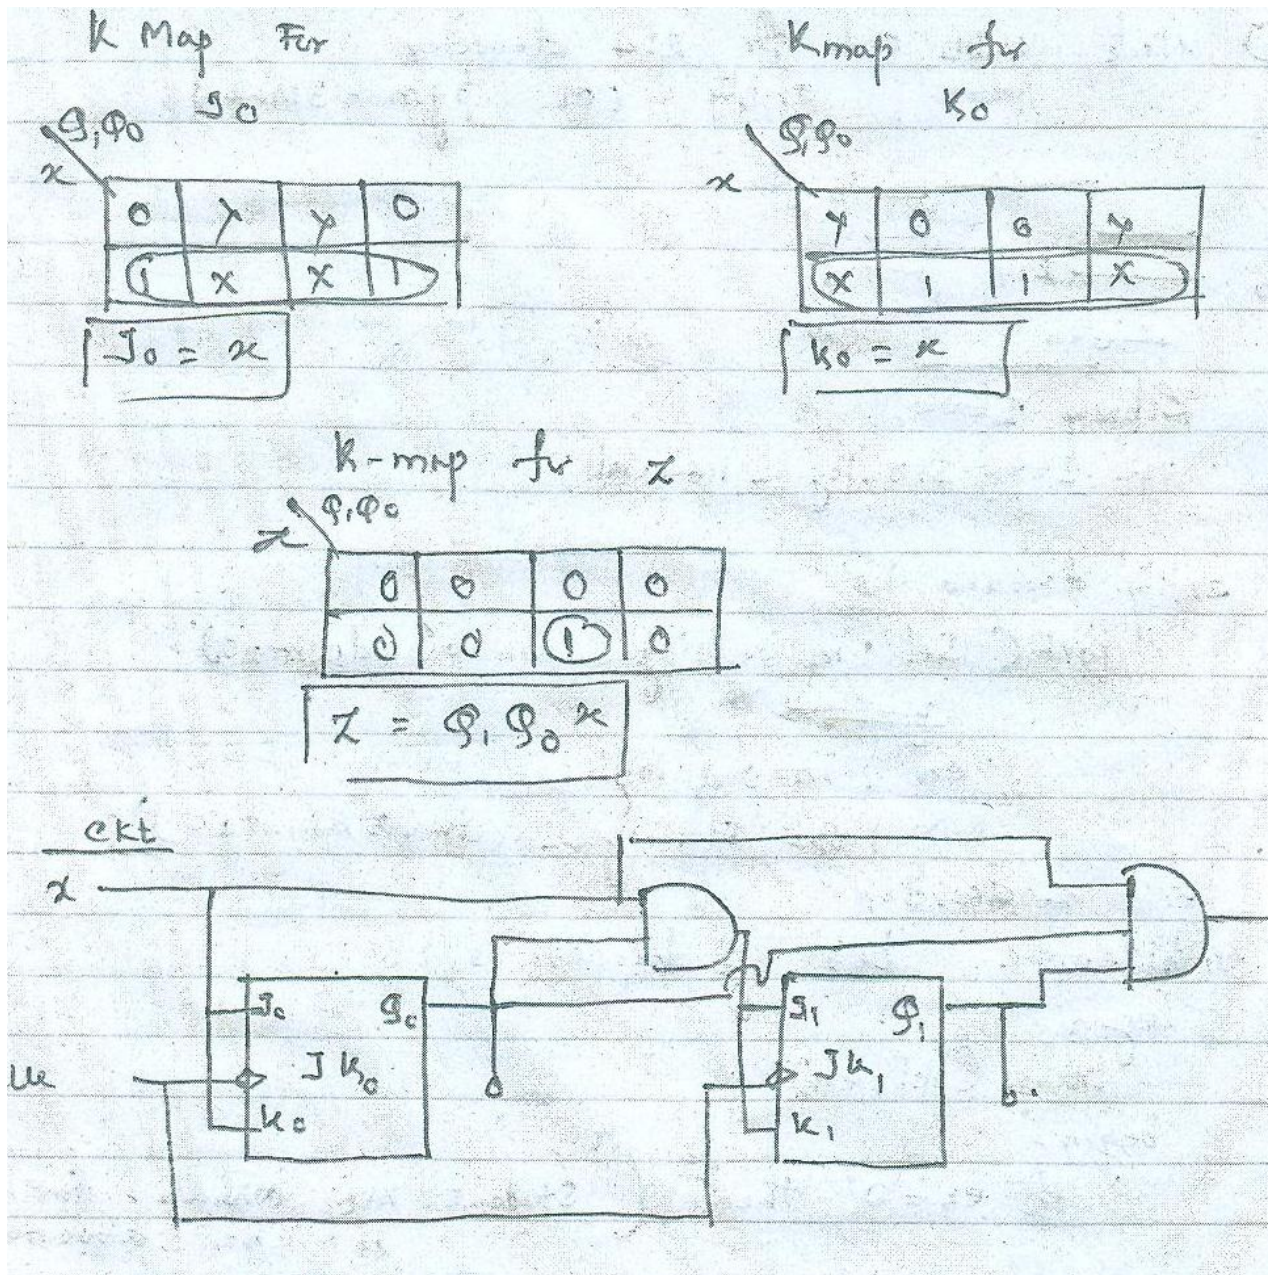 K Map For
J0
Q1Q0
x
0 x x 0
1 x x 1
J0 = x
Kmap for
K0
Q1Q0
x
x 0 0 x
x 1 1 x
K0 = x
K-map for Z
Q1Q0
x
0 0 0 0
0 0 1 0
Z = Q1 Q0 x
ckt
x
J0 Q0
JK0
K0
J1 Q1
JK1
K1